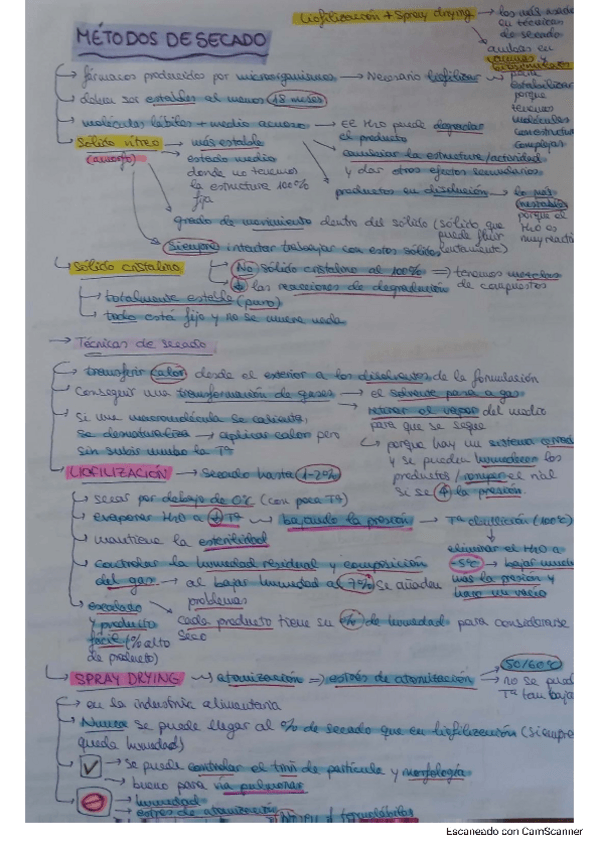 Liofilización + Spray drying → los más usados
en técnicas
de secado
ambas en
vacunas y
MÉTODOS DE SECADO
↳ fármacos producidos por microorganismos → Necesario liofilizar → para
estabilizar
porque
tenemos
moléculas
con estructuras
complejas
↳ deben ser estables al menos 18 meses
↳ moléculas lábiles + medio acuoso → El H2O puede degradar
el producto
cambiar la estructura/actividad
y dar otros efectos secundarios
productos en disolución → lo más
inestables
porque el
H2O es
muy reactiva
Sólido vítreo → más estable
(amorfo) → estado medio
donde no tenemos
la estructura 100%
fija
grado de movimiento dentro del sólido (sólido que
puede fluir
lentamente)
Siempre intentar trabajar con estos sólidos
↳ Sólido cristalino
No sólido cristalino al 100% ⇒ tenemos mezclas
de compuestos
↓ las reacciones de degradación
→ totalmente estable (puro)
→ todo está fijo y no se mueve nada
→ Técnicas de secado
→ transferir calor desde el exterior a los disolventes de la formulación
→ Conseguir una transformación de gases → el solvente pasa a gas
→ retirar el vapor del medio
para que se seque
→ Si una macromolécula se calienta,
se desnaturaliza → aplicar calor pero
sin subir mucho la Tª
↳ porque hay un sistema cerrado
y se pueden humedecer los
productos/romper el vial
si se ↑ la presión
LIOFILIZACIÓN → Secado hasta 1-2%
→ secar por debajo de 0ºC (con poca Tª)
→ evaporar H2O a ↓Tª → bajando la presión → Tª ebullición (100ºC)
eliminar el H2O a
-5ºC → bajar mucho
más la presión y
hago un vacío
→ mantiene la esterilidad
→ controlar la humedad residual y composición
del gas → al bajar humedad al 7% se añaden
problemas
→ escalado
y producto
fácil (% alto
de producto)
cada producto tiene su % de humedad para considerarse
seco
↳ SPRAY DRYING → atomización ⇒ estrés de atomización
50/60ºC
→ no se puede
Tª tan baja
→ en la industria alimentaria
→ Nunca se puede llegar al % de secado que en liofilización (siempre
queda humedad)
✓ → se puede controlar el tmñ de partícula y morfología
→ bueno para vía pulmonar
→ humedad
→ estrés de atomización
termolábiles
Escaneado con CamScanner